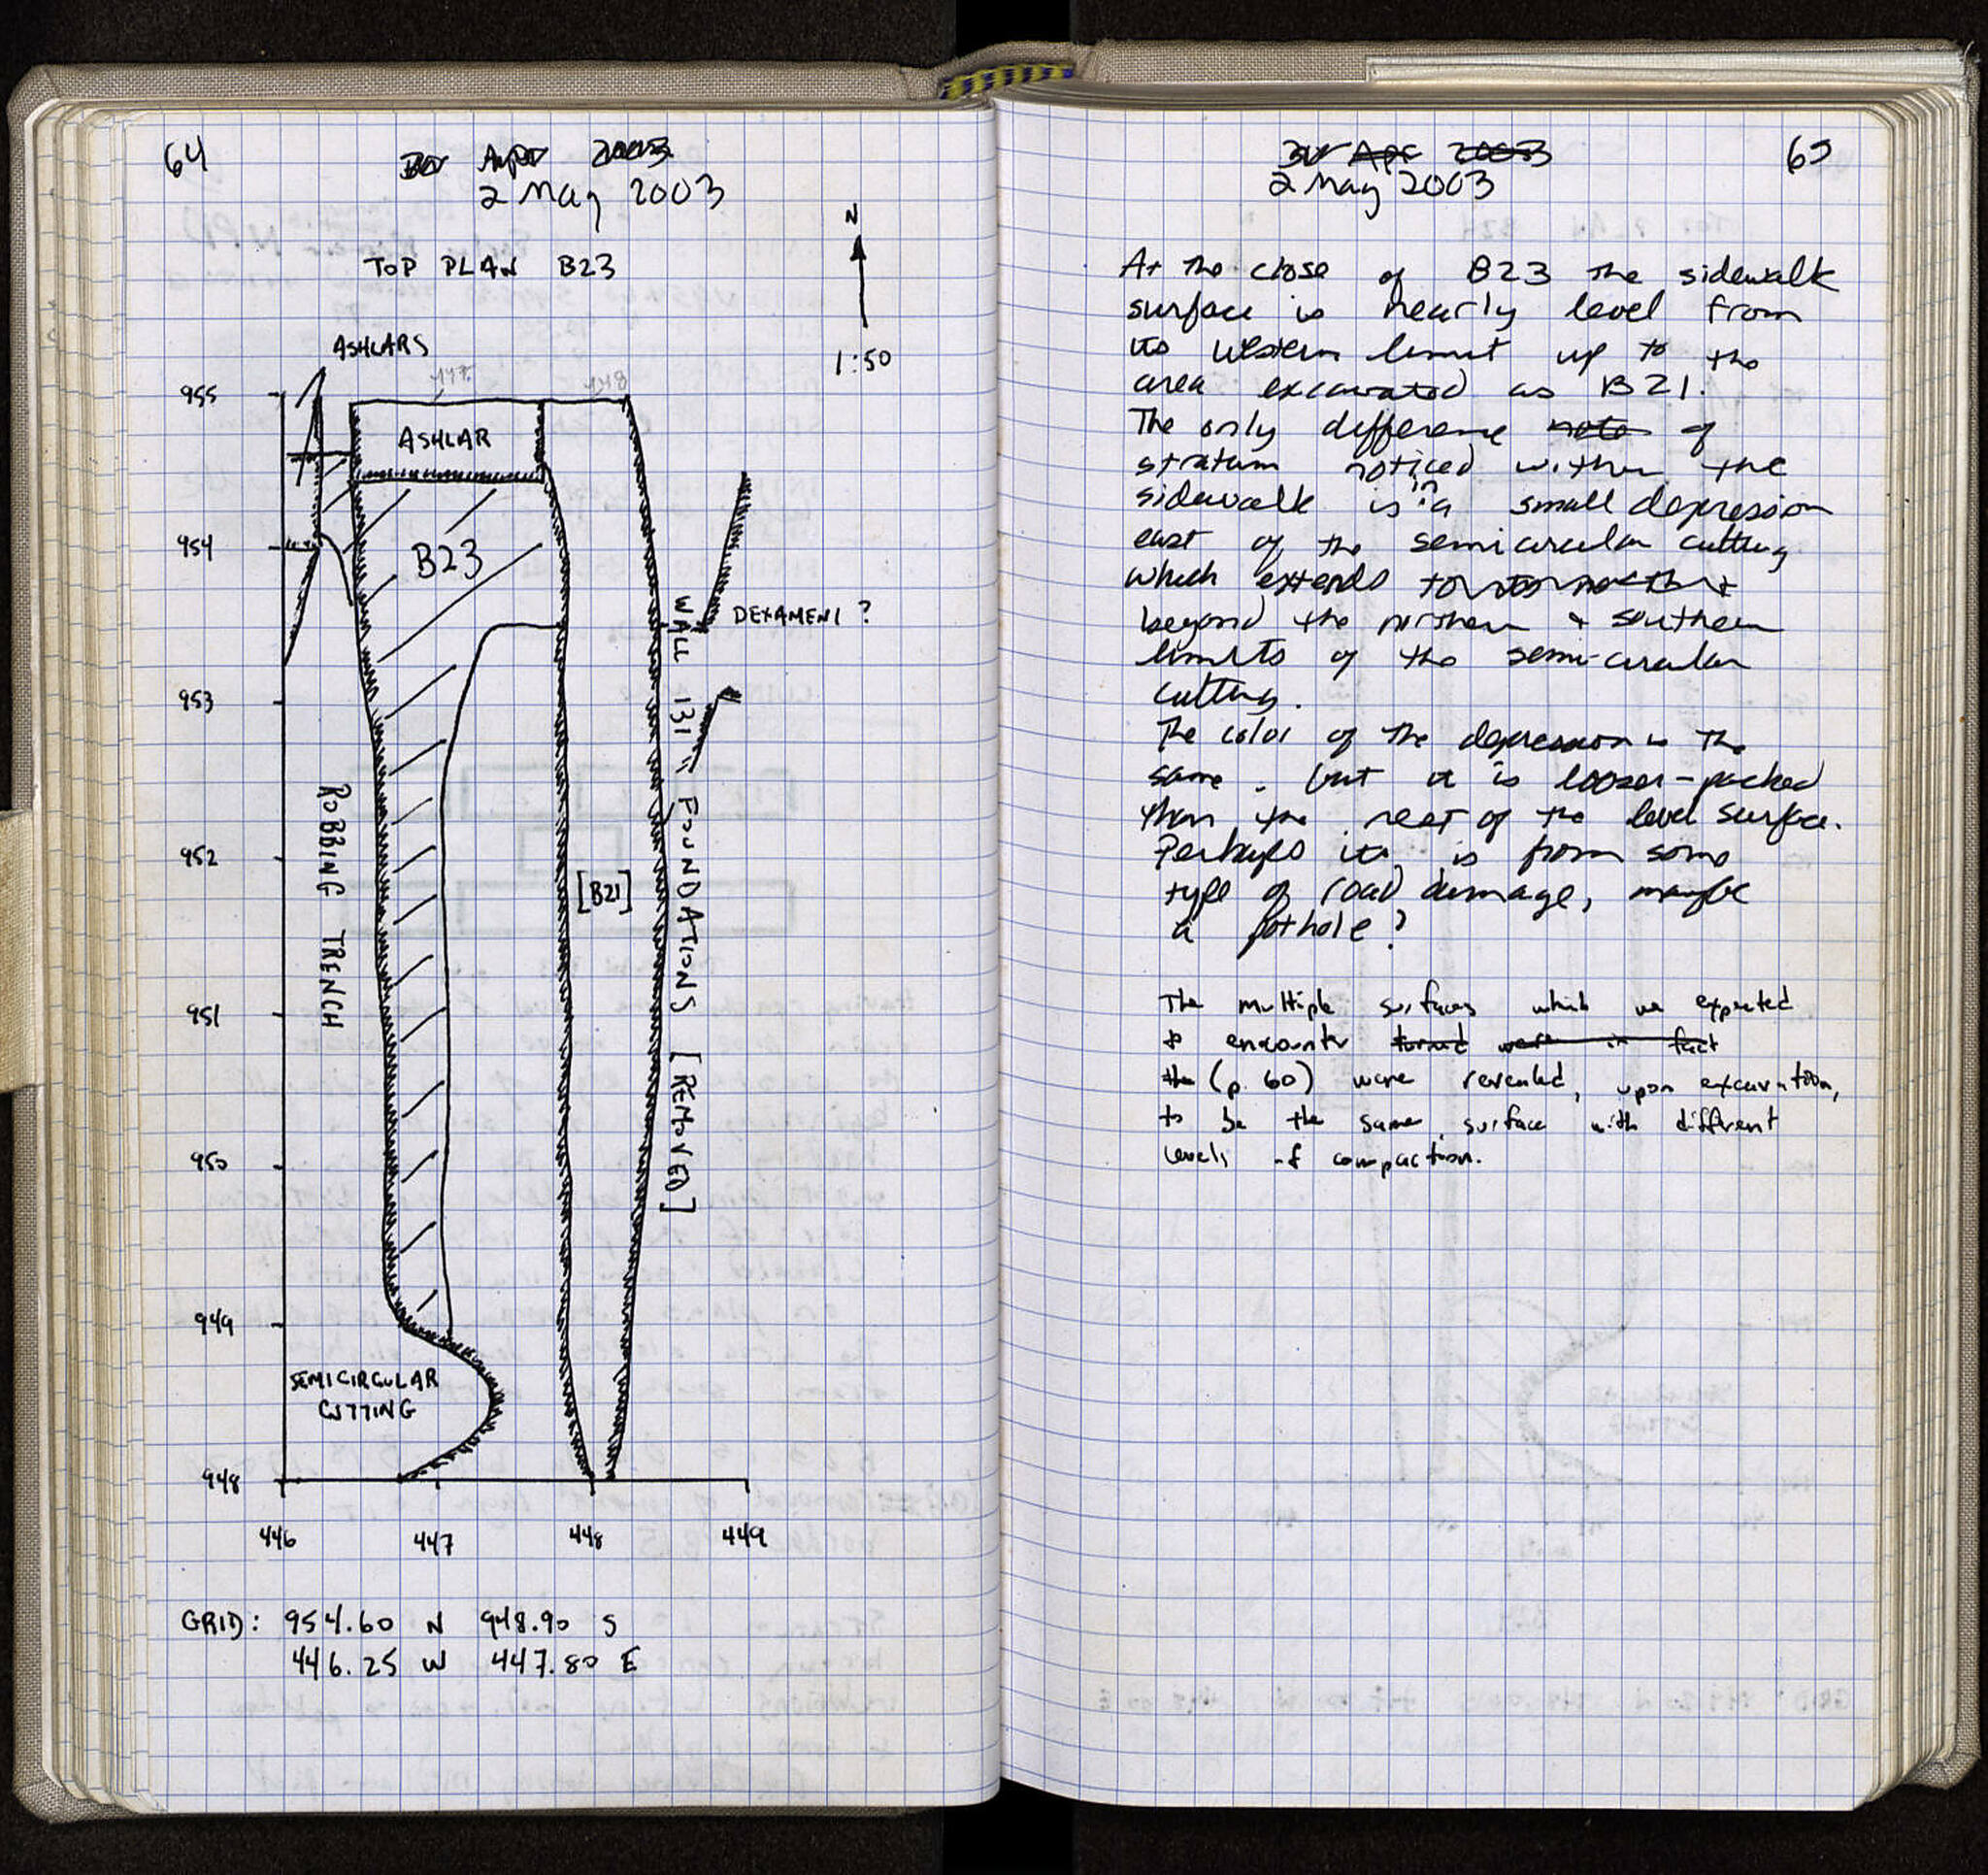 64
30 Apr 2003
2 May 2003
TOP PLAN B23
N
1:50
ASHLARS
955
ASHLAR
954
B23
DEXAMENI ?
953
WALL 131 = FOUNDATIONS [REMOVED]
ROBBING TRENCH
952
[B21]
951
950
949
SEMICIRCULAR
CUTTING
948
446 447 448 449
GRID: 954.60 N 948.90 S
446.25 W 447.80 E
30 Apr 2003
65
2 May 2003
At the close of B23 the sidewalk
surface is nearly level from
its western limit up to the
area excavated as B21.
The only difference note of
stratum noticed within the
sidewalk is in a small depression
east of the semicircular cutting
which extends to
beyond the northern & southern
limits of the semi-circular
cutting.
The color of the depression is the
same, but it is looser-packed
than the rest of the level surface.
Perhaps its is from some
type of road damage, maybe
a pothole?
The multiple surfaces which we expected
to encounter turned were in fact
the (p. 60) were revealed, upon excavation,
to be the same surface with different
levels of compaction.